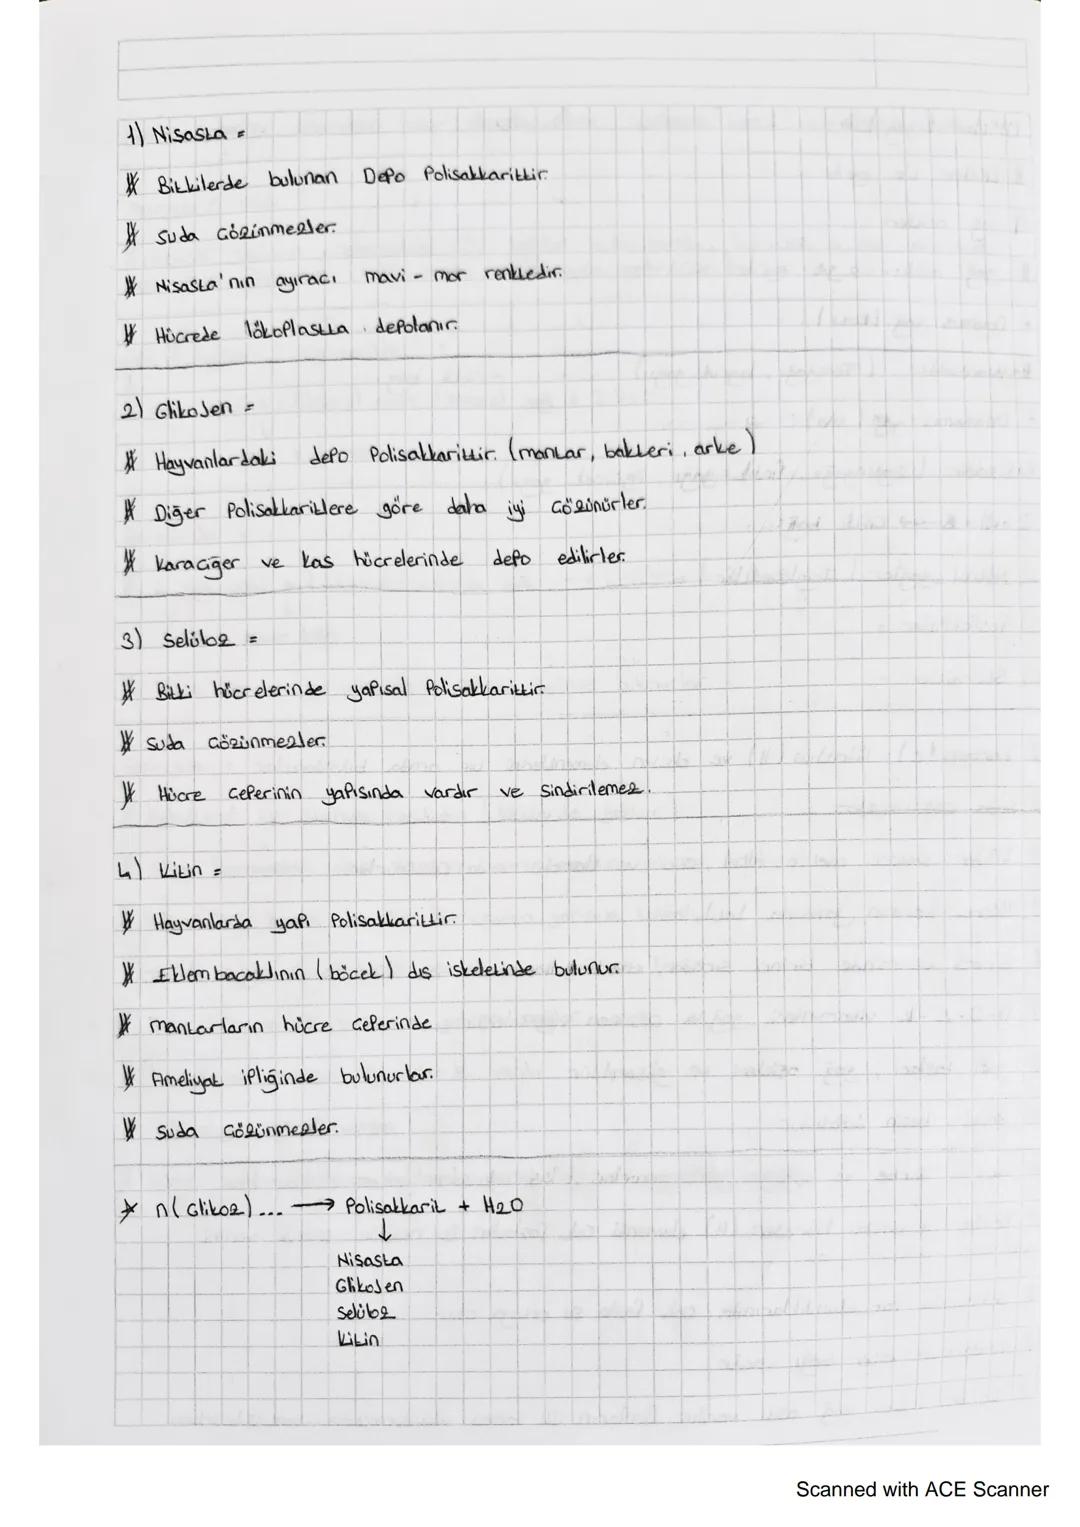 1) Nisasta =
* Bitkilerde bulunan Depo Polisakkarittir.
* Suda Cözünmezler.
* Nisasta'nın ayıracı mavi - mor renktedir.
* Hücrede lökoplastta depolanır.
2) Glikojen =
* Hayvanlardaki depo Polisakkarittir. (mantar, bakteri, arke)
* Diğer Polisakkaritlere göre daha iyi Cözünürler.
* Karaciğer ve kas hücrelerinde depo edilirler.
3) Selüloz =
* Bitki hücrelerinde yapısal Polisakkarittir.
* Suda Cözünmezler.
* Hücre Ceperinin yapısında vardır ve Sindirilemez.
4) Kitin =
* Hayvanlarda yapı Polisakkarittir.
* Eklem bacaklının (böcek) dıs iskeletinde bulunur.
* mantarların hücre Ceperinde
* Ameliyat ipliğinde bulunurlar.
* Suda Cözünmezler.
* n(Glikoz)... → Polisakkarit + H2O
↓
Nisasta
Glikojen
Selüloz
Kitin
Scanned with ACE Scanner